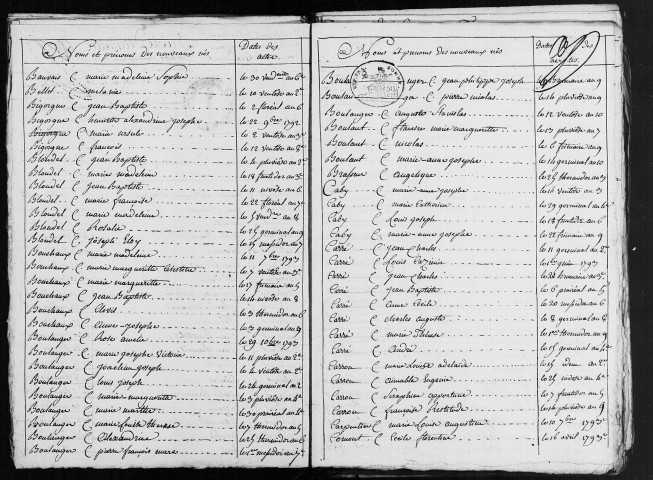 Noms et prénoms des nouveaux nés
Dates des actes
Bauvais C marie madeleine Sophie le 30
Bellet C melanie le 10 ventôse an 2e
Bigorgne C jean Baptiste le 2 floréal an 6
Bigorgne C henriette alexandrine josephe le 22 9bre 1792
Bigorgne C marie ursule le 2 ventôse an 3e
Bigorgne C françois le 12 ventôse an 8e
Blondel C jean Baptiste le 4 pluviôse an
Blondel C marie madeleine le 18 fructidor an 3e
Blondel C jean Baptiste le 11 nivôse an 6
Blondel C marie françoise le 22 floréal an
Blondel C marie madeleine an 8
Blondel C Rosalie le 25 germinal an 9
Blondel C joseph Eloy le 15 messidor an
Bouchaux C marie madeleine le 11 7bre 1793
Bouchaux C marie marguerite Célestine le 7 ventôse an 3e
Bouchaux C marie marguerite le 17 frimaire an 5
Bouchaux C jean Baptiste le 16 nivôse an 8
Bouchaux C Clovis le 3 thermidor an 6
Bouchaux C Anne-josephe le 3 germinal an 9
Boulanger C Rose amelie le 29 10bre 1793
Boulanger C marie josephe Victoire le 11 pluviôse an 2e
Boulanger C joachim joseph le 4 ventôse an 2e
Boulanger C louis joseph le 26 germinal an 2
Boulanger C marie marguerite le 3 pluviôse an 4e
Boulanger C marie marthe le 30 prairial an 4e
Boulanger C marie louise therese le 7 thermidor an 5
Boulanger C Alexandrine le 25 thermidor an 6
Boulanger C pierre françois marc le 1er messidor an 7
Noms et prénoms des nouveaux nés
Dates des actes
jean philippe joseph an 9
C pierre nicolas le 16 pluviôse an 9
Boulanger C auguste Stanislas le 12 ventôse an 10
Boulant C marie marguerite le 13 pluviôse an 7
Boulant C nicolas le 6 frimaire an 9
Boulant C marie-anne josephe le 14 germinal an 10
Brasseur C angelique le 25 thermidor an 3
Caby C marie anne josephe le 16 ventôse an 3
Caby C marie Catherine le 29 germinal an 4e
Caby C louis joseph le 18 fructidor an 6
Caby C marie-anne josephe le 22 frimaire an 9
Carré C jean Charles le 11 germinal an 2e
Carré C louis Casimir le 1er 1793
Carré C jean Charles le 20 brumaire an 3e
Carré C jean Baptiste le 6 germinal an 5
Carré C anne Cécile le 20 messidor an 6
Carré C charles auguste le 8 germinal an 8
Carré C marie Thérèse le 1er thermidor an 9
Carré C André le 15 germinal an
Carron C marie louise adelaïde le 15 an 2
Carron C aimable Eugenie le 25 nivôse an 4e
Carron C Seraphine opportune le 7 fructidor an 5
Carron C françoise le 16 pluviôse an 9
Carpentier C marie louise augustine le 10 7bre 1793
Cornent C Cécile florentine le 16 avril 1793